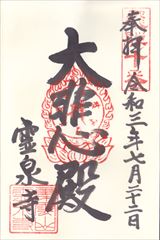 奉拝 令和三年七月二十二日
大悲心殿
霊泉寺